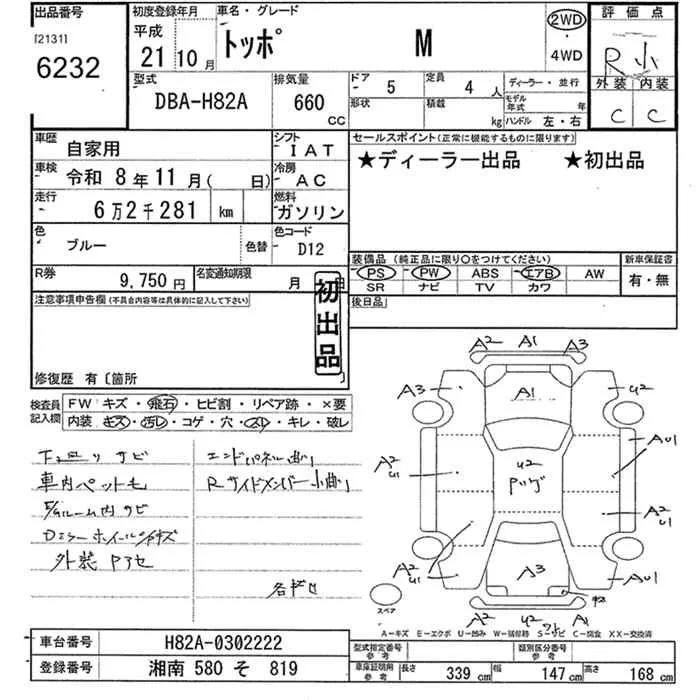 出品番号
[2131]
6232
初度登録年月
平成
21 10月
車名・グレード
トッポ M
2WD
4WD
評価点
R小
外装 内装
C C
型式
DBA-H82A
排気量
660
CC
ドア 5
定員 4 人
形状
積載 kg
ディーラー・並行
モデル年式 年
ハンドル 左・右
車歴
自家用
シフト
IAT
車検
令和 8年11月( 日)
冷房
AC
走行
6万2千281 km
燃料
ガソリン
色
ブルー
色替
色コード
D12
セールスポイント(正常に機能するものに限ります)
★ディーラー出品 ★初出品
装備品(純正品に限り〇をつけてください)
PS PW ABS エアB AW
SR ナビ TV カワ
新車保証書
有・無
R券
9,750円
名変通知期限
月 日
後日品
注意事項申告欄(不具合内容等は具体的に記入して下さい)
初出品
修復歴 有〔箇所 〕
検査員
記入欄
FW キズ・飛石・ヒビ割・リペア跡・×要
内装 キズ・汚レ・コゲ・穴・スレ・キレ・破レ
下回りサビ
車内ペット毛
E/ルーム内サビ
Dミラーホイールキャップキズ
外装アセ
エンドパネル曲り
Rサイドメンバー小曲り
各ボセ
A2 A1 A3
A3 A1 U2
A2 U1
U2
AU1
A2 U1
A2 U1
A3
AU1
A2 U2 A1
スペア
A－キズ E－エクボ U－凹み W－補修跡 S－サビ C－腐食 XX－交換済
車台番号
H82A-0302222
登録番号
湘南 580 そ 819
型式指定番号
参考
類別区分番号
参考
車庫証明用
参考
長さ 339 cm
幅 147 cm
高さ 168 cm